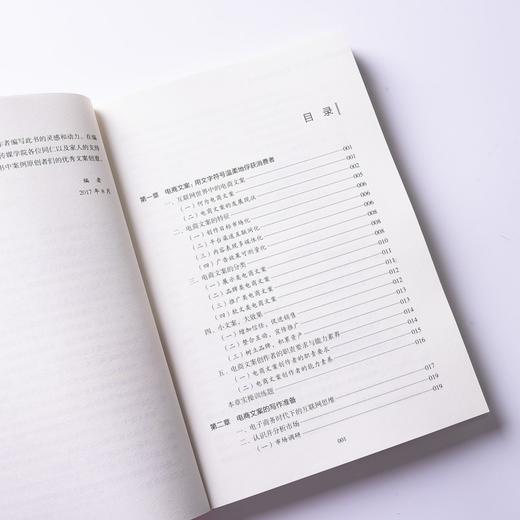 者编写此书的灵感和动力。在编
传媒学院各位同仁以及家人的支持
书中案例原创者们的优秀文案创意。
编 者
2017 年 8 月
目 录
第一章 电商文案：用文字符号温柔地俘获消费者 001
一、互联网世界中的电商文案 001
（一）何为电商文案 002
（二）电商文案的发展现状 005
二、电商文案的特征 007
（一）创作目标市场化 008
（二）平台渠道互联网化 008
（三）内容表现多媒体化 008
（四）广告效果可测量化 008
三、电商文案的分类 011
（一）展示类电商文案 011
（二）品牌类电商文案 012
（三）推广类电商文案 012
（四）软文类电商文案 012
四、小文案，大效果 013
（一）增加信任，促进销售 014
（二）整合互动，宣传推广 014
（三）树立品牌，积累资产 014
五、电商文案创作者的职责要求与能力素养 015
（一）电商文案创作者的职责要求 015
（二）电商文案创作者的能力素养 016
本章实操训练题
第二章 电商文案的写作准备 017
一、电子商务时代下的互联网思维 019
二、认识并分析市场 019
（一）市场调研
001